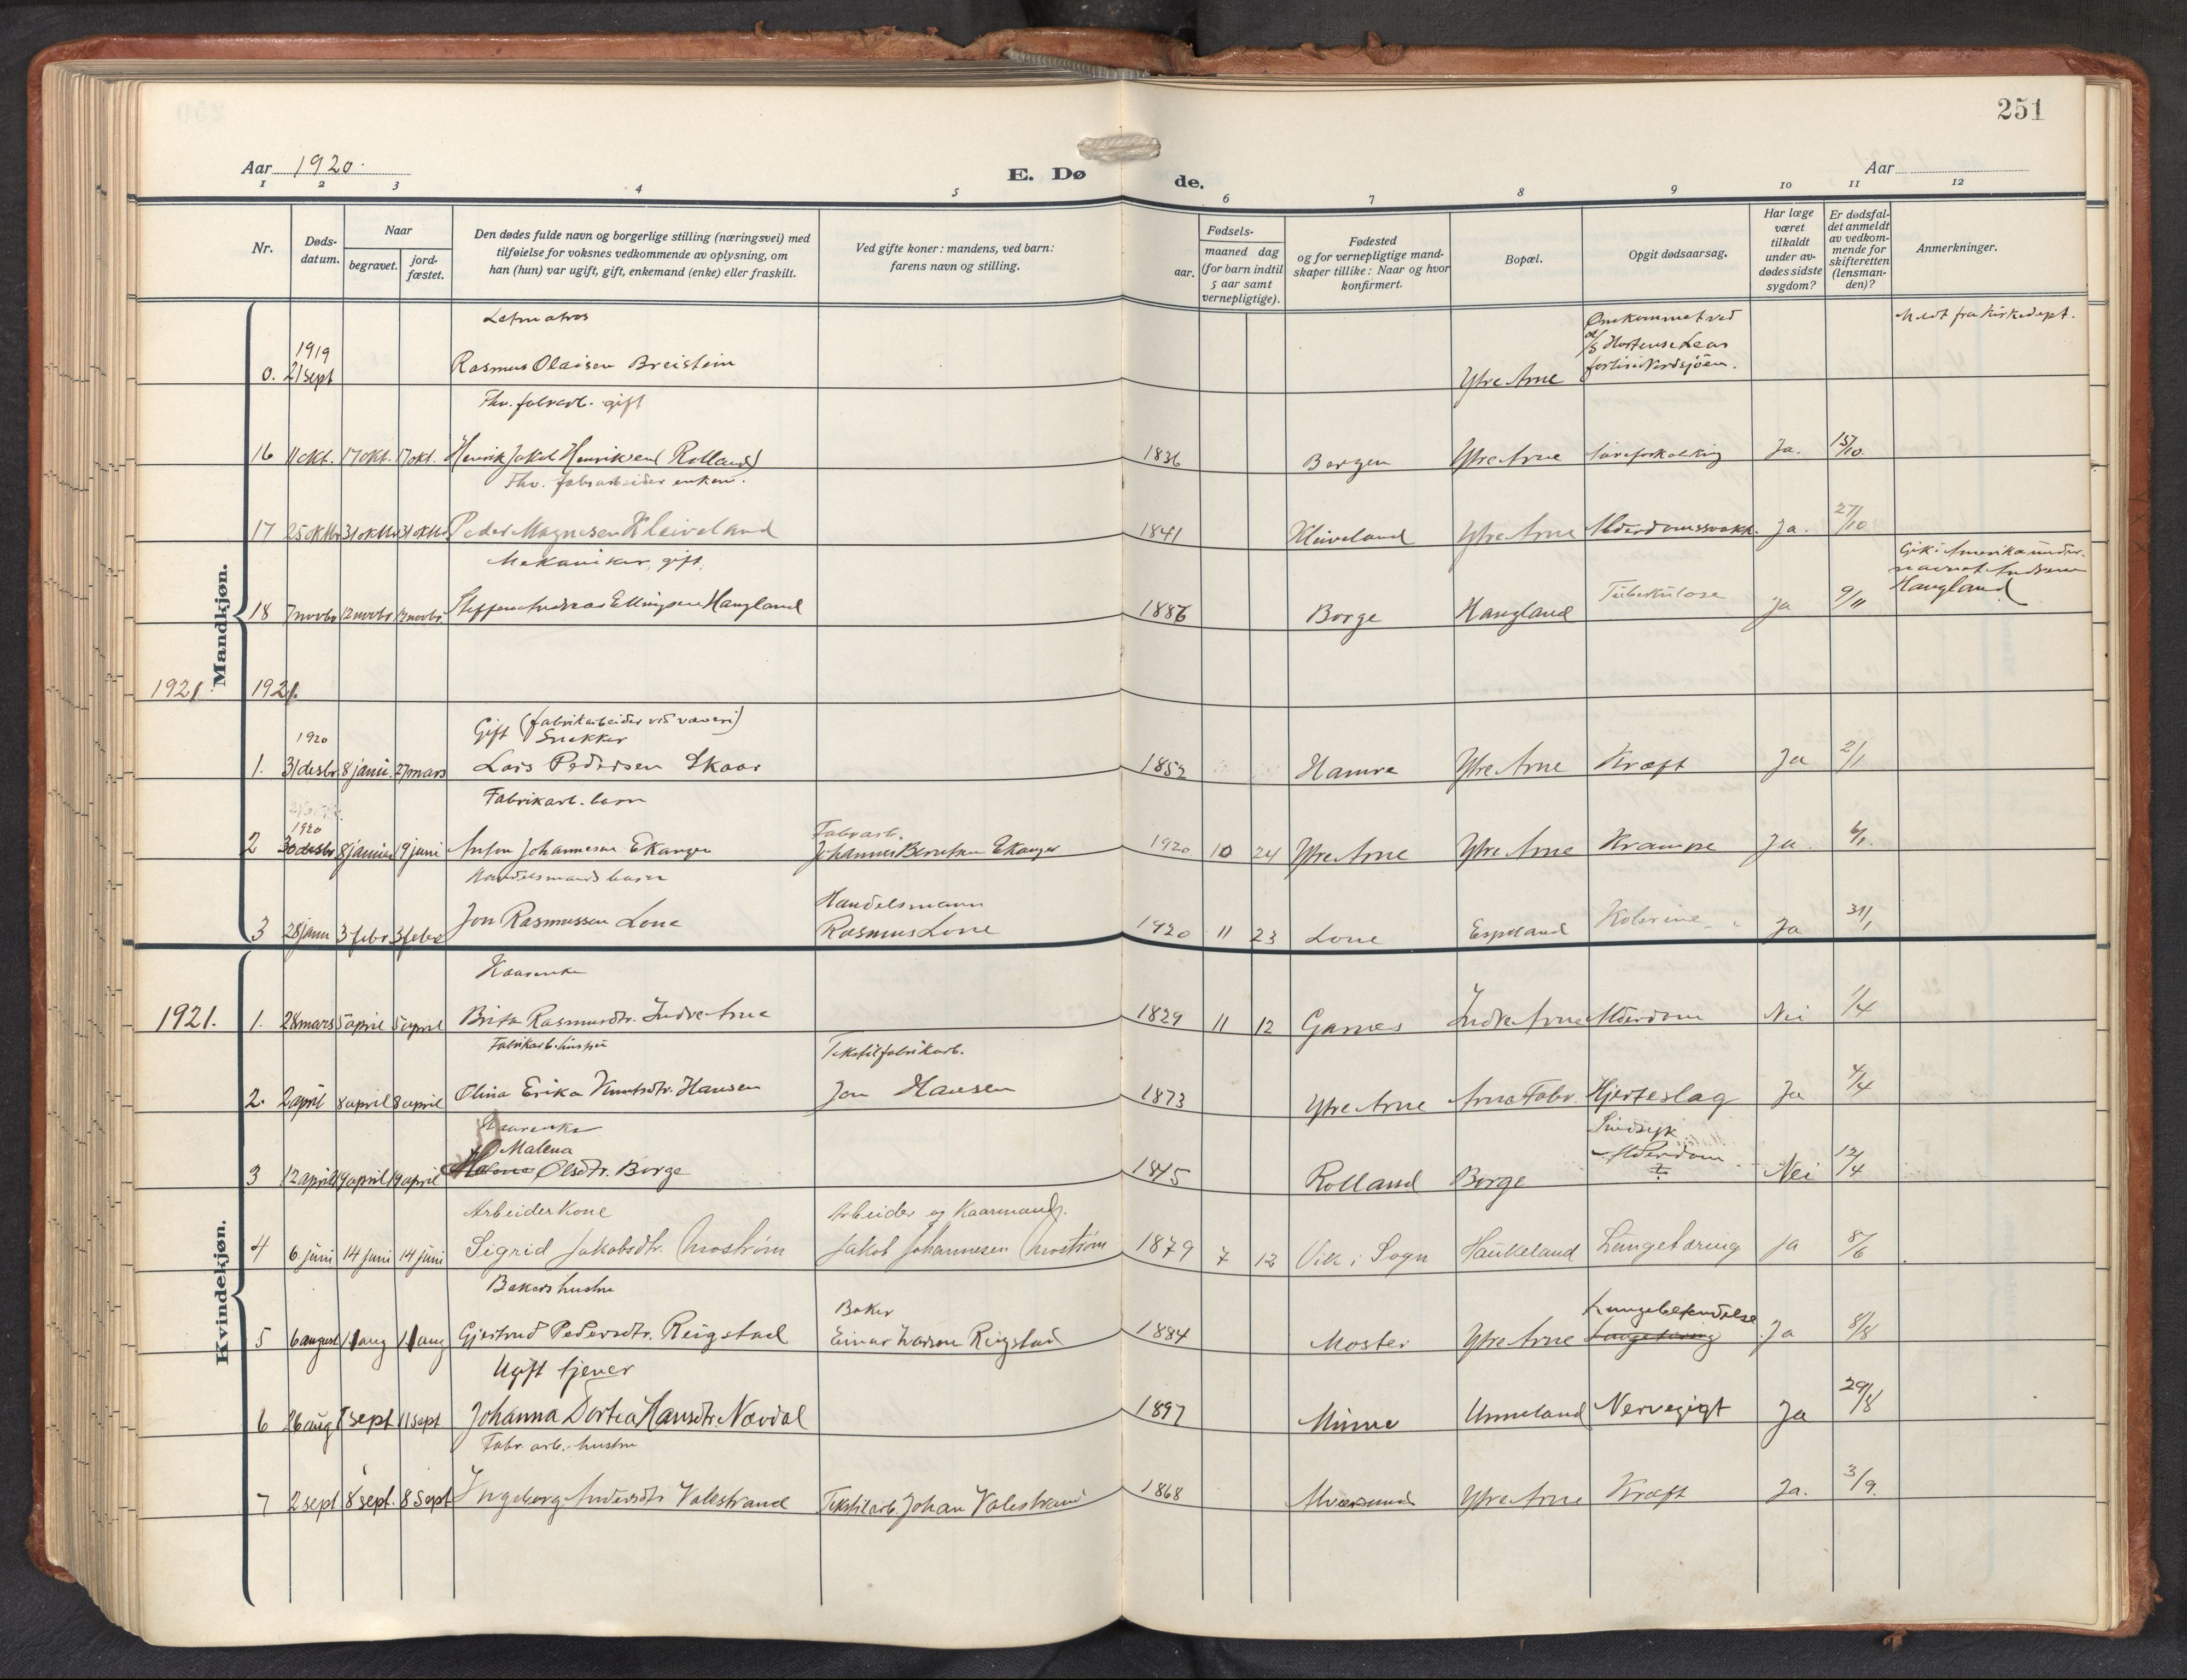 251
Aar 1920.
E. Døde.
Aar
1 2 3 4 5 6 7 8 9 10 11 12
Nr.
Døds-
datum.
Naar
begravet.
jord-
fæstet.
Den dødes fulde navn og borgerlige stilling (næringsvei) med
tilføielse for voksnes vedkommende av oplysning, om
han (hun) var ugift, gift, enkemand (enke) eller fraskilt.
Ved gifte koner: mandens, ved barn:
farens navn og stilling.
Fødsels-
aar.
maaned dag
(for barn indtil
5 aar samt
vernepligtige).
Fødested
og for vernepligtige mand-
skaper tillike: Naar og hvor
konfirmert.
Bopæl.
Opgit dødsaarsag.
Har læge
været
tilkaldt
under av-
dødes sidste
sygdom?
Er dødsfal-
det anmeldt
av vedkom-
mende for
skifteretten
(lensman-
den)?
Anmerkninger.
Mandkjøn.
Letmatros
Omkommet ved
Meldt fra Kirkedept.
1919
0. 21 sept Rasmus Olaisen Breistein Ytre Arne
Fhv. fabrarb. gift
16 11 okt. 17 okt. 17 okt. Henrik Jakob Henriksen (Rolland) 1836 Bergen Ytre Arne Aareforkalking Ja. 15/10.
Fhv. fabrarbeider enkem.
17 25 oktbr 31 oktbr 31 oktbr Peder Magnesen Kleiveland 1841 Kleiveland Ytre Arne Alderdomssvakh. Ja. 27/10
Mekaniker, gift.
Gik i Amerika under
navnet Anderson
Haugland
18 7 novbr 12 novbr 12 novbr. Steffen Andreas Ellingsen Haugland 1886 Borge Haugland Tuberkulose Ja 9/11
1921. 1921.
Gift (fabrikarbeider ved væveri)
Snekker
1920
1. 31 desbr. 8 janu. 27 mars Lars Pedersen Skaar 1852 Hamre Ytre Arne Kræft Ja 2/1
Fabrikarb. barn
1920
Fabrarb.
2 30 desbr 8 januar 9 juni Anton Johannesen Ekanger Johannes Berntsen Ekanger 1920 10 24 Ytre Arne Ytre Arne Krampe Ja. 6/1.
Handelsmands barn
Handelsmann
3 28 janu 3 febr 3 febr Jon Rasmussen Lone Rasmus Lone 1920 11 23 Lone Espeland Kolerine Ja 31/1
Kvindekjøn.
Kaarenke
1921. 1. 28 mars 5 april 5 april Brita Rasmusdtr. Indre Arne 1829 11 12 Garnes Indre Arne Alderdom Nei 1/4
Fabrikarb. hustru
Tekstilfabrikarb.
2. 2 april 8 april 8 april Olina Erika Knutsdtr. Hansen Jon Hansen 1873 Ytre Arne Arne Fabr. Hjerteslag Ja 4/4
Kaarenke
Sindsyk
Malena
3 12 april 19 april 19 april Olsdtr. Borge 1845 Rolland Borge Alderdom ? Nei 12/4
Arbeiderkone
Arbeider og Kaarmand.
4 6 juni 14 juni 14 juni Sigrid Jakobsdtr. Moström Jakob Johannesen Moström 1879 7 12 Vik i Sogn Haukeland Lungetæring ja 8/6
Bakers hustru
Baker
Lungebetændelse
5 6 august 11 aug 11 aug Gjertrud Pedersdtr. Reigstad Einar Larsen Reigstad 1884 Moster Ytre Arne Lungetæring Ja 8/8
Ugift tjener
6 26 aug 7 sept 11 sept Johanna Dortea Hansdtr. Navdal 1897 Minne Unneland Nervegigt Ja 29/8
Fabr. arb. hustru
7 2 sept 8 sept. 8 sept Ingeborg Andersdtr Valestrand Tekstilarb. Johan Valestrand 1868 Alversund Ytre Arne Kræft Ja. 3/9.